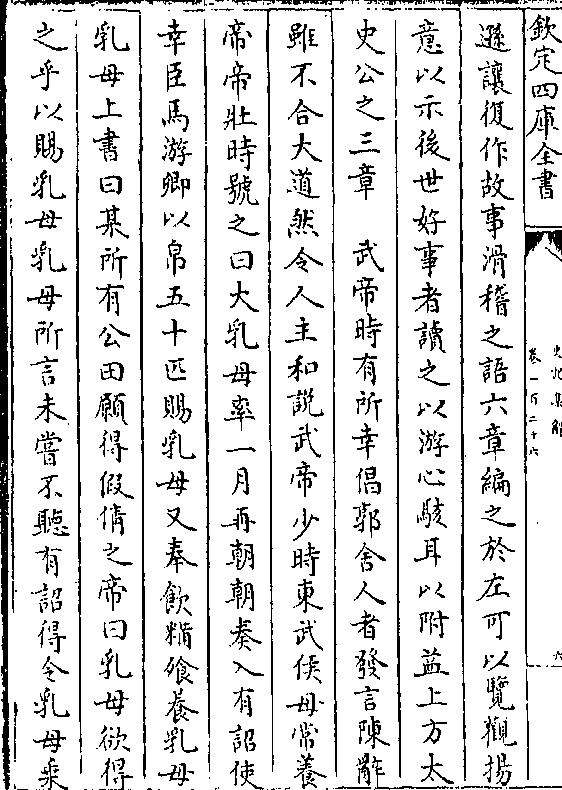 欽定四庫全書
史記集解
卷一百二十六
六
遜讓復作故事滑稽之語六章編之於左可以覽觀揚
意以示後世好事者讀之以游心駭耳以附益上方太
史公之三章　武帝時有所幸倡郭舍人者發言陳辭
雖不合大道然令人主和說武帝少時東武侯母常養
帝帝壯時號之曰大乳母率一月再朝朝奏入有詔使
幸臣馬游卿以帛五十匹賜乳母又奉飲糒飱養乳母
乳母上書曰某所有公田願得假倩之帝曰乳母欲得
之乎以賜乳母乳母所言未嘗不聽有詔得令乳母乘